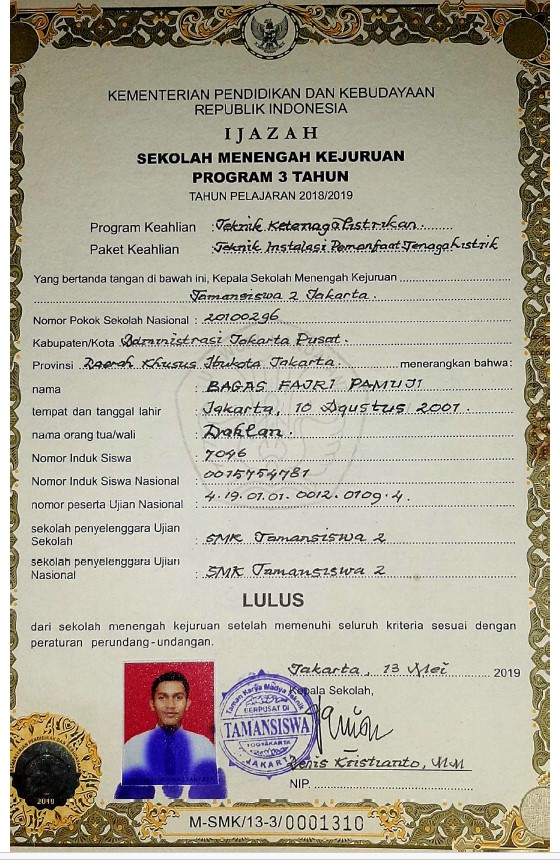 KEMENTERIAN PENDIDIKAN DAN KEBUDAYAAN
REPUBLIK INDONESIA
IJAZAH
SEKOLAH MENENGAH KEJURUAN
PROGRAM 3 TAHUN
TAHUN PELAJARAN 2018/2019
Program Keahlian : Teknik Ketenagalistrikan
Paket Keahlian : Teknik Instalasi Pemanfaat Tenaga Listrik
Yang bertanda tangan di bawah ini, Kepala Sekolah Menengah Kejuruan
Tamansiswa 2 Jakarta.
Nomor Pokok Sekolah Nasional : 20100296
Kabupaten/Kota Administrasi Jakarta Pusat.
Provinsi Daerah Khusus Ibukota Jakarta. menerangkan bahwa:
nama : BAGAS FAJRI PAMUJI
tempat dan tanggal lahir : Jakarta, 10 Agustus 2001.
nama orang tua/wali : Dahlan.
Nomor Induk Siswa : 7046
Nomor Induk Siswa Nasional : 0015754781
nomor peserta Ujian Nasional : 4.19.01.01.0012.0109.4.
sekolah penyelenggara Ujian
Sekolah : SMK Tamansiswa 2
sekolah penyelenggara Ujian
Nasional : SMK Tamansiswa 2
LULUS
dari sekolah menengah kejuruan setelah memenuhi seluruh kriteria sesuai dengan
peraturan perundang-undangan.
Jakarta, 13 Mei 2019
Kepala Sekolah,
Taman Karya Madya Teknik
BERPUSAT DI
TAMANSISWA
YOGYAKARTA
JAKARTA
Kristianto, M.M
NIP.
2019
M-SMK/13-3/0001310